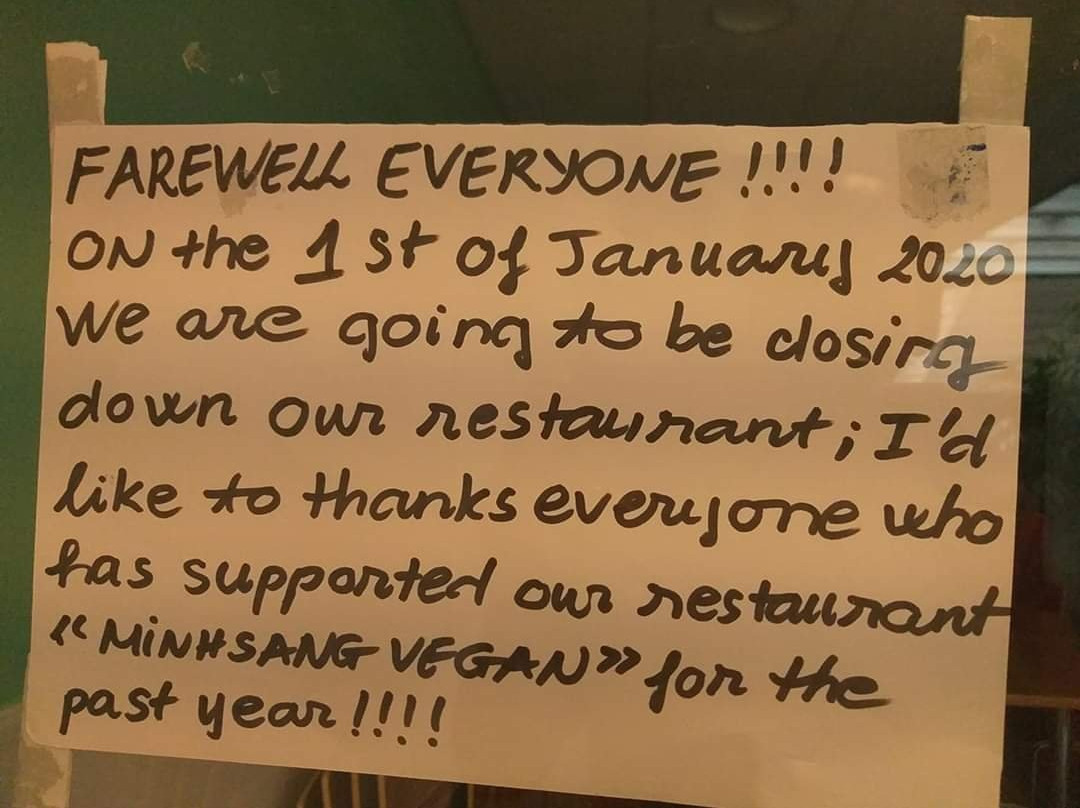 FAREWELL EVERYONE !!!!
ON the 1st of January 2020
We are going to be closing
down our restaurant; I'd
like to thanks everyone who
has supported our restaurant
"MiNHSANG VEGAN" for the
past year!!!!